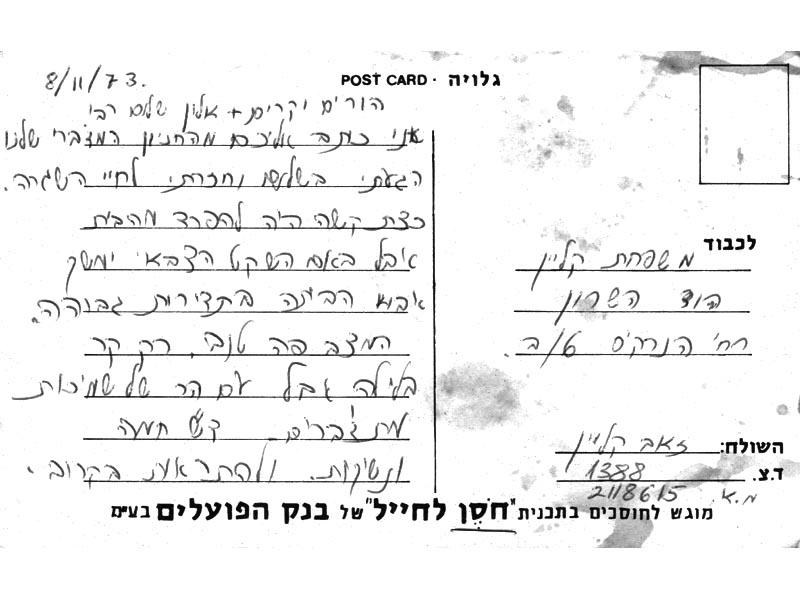 גלויה · POST CARD
8/11/73.
הורים יקרים + אלון שלום רב!
אני כותב אליכם מהחניון המדברי שלנו
הגעתי בשלום וחזרתי לחיי השגרה.
קצת קשה היה להפרד מהבית
אבל באם השקט הצבאי ימשך
אבוא הביתה בתדירות גבוהה.
המצב פה טוב, רק קר
בלילה אבל עם הר של שמיכות
מתגברים. ד"ש חמה
ונשיקות. ולהתראות בקרוב.
לכבוד
משפחת קליין
הוד השרון
רח' הנרקיס 6/ב.
השולח: זאב קליין
ד.צ. 1388
מ.א. 2118615
מוגש לחוסכים בתכנית "חֹסֶן לחייל" של בנק הפועלים בע"מ